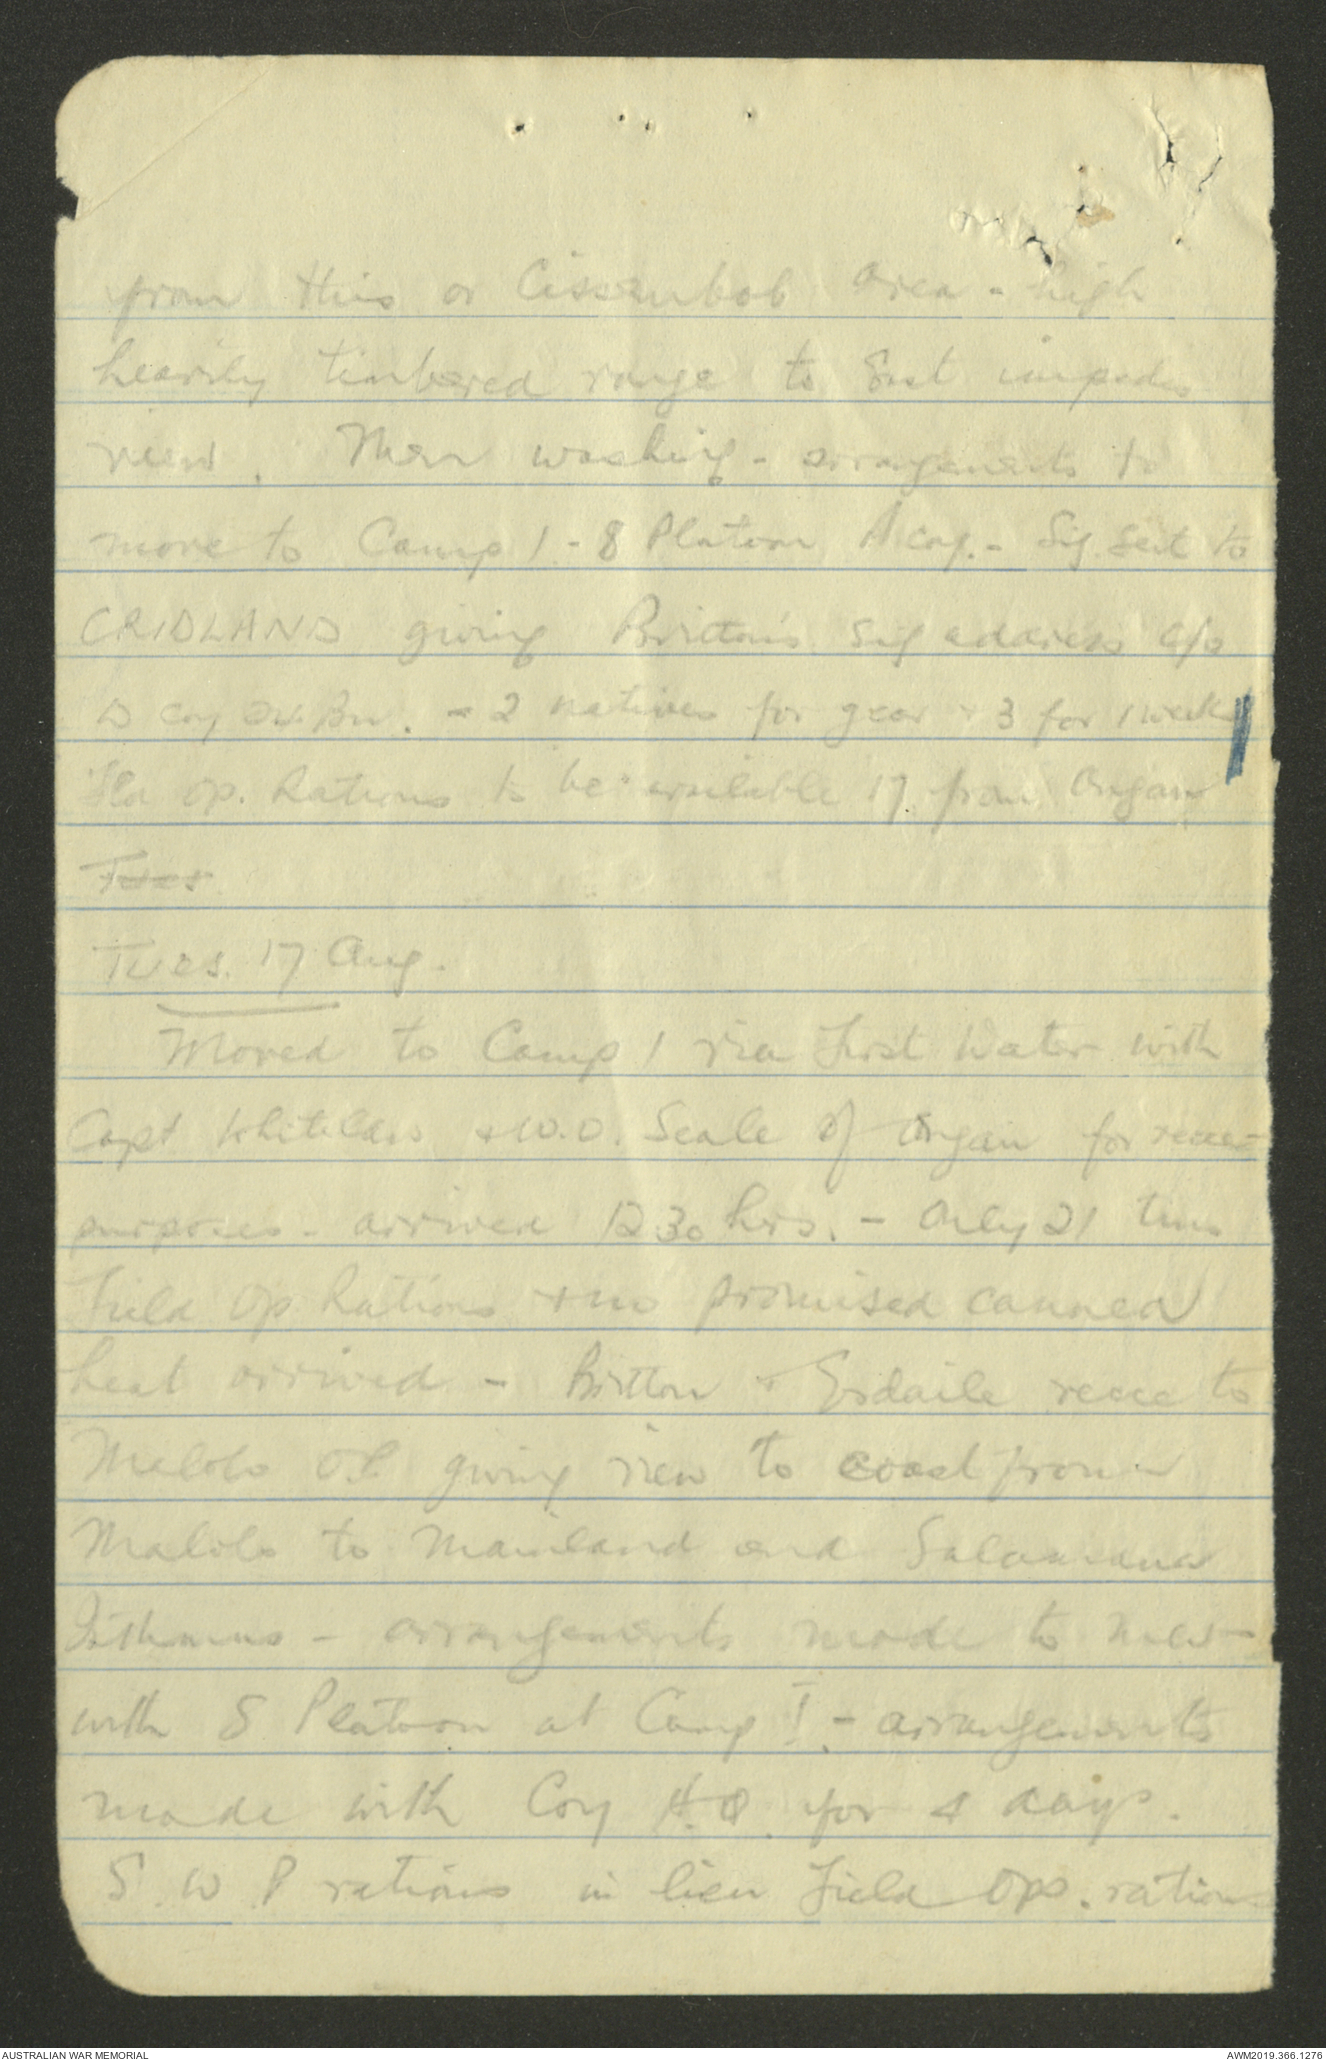 from this or Cissembob area - high
heavily timbered range to East impedes
view. Men washing - arrangements to
move to Camp 1 - 8 Platoon A coy. - Sig sent to
CRIDLAND giving Britton's sig address c/o
D coy Bn. - 2 natives for gear + 3 for 1 week
Op. Rations to be available 17 from Organ
Tues
Tues. 17 Aug.
Moved to Camp 1 via First Water with
Capt Whitelaw + W.O. Seale of Angau for recce
purposes - arrived 1230 hrs. - Only 21 tins
Field Op Rations + no promised canned
heat arrived - Britton + Esdaile recce to
Malolo O.P. giving view to coast from
Malolo to Mainland and Salamaua
Isthmus - arrangements made to mess
with 8 Platoon at Camp 1 - arrangements
made with Coy H.Q. for 4 days.
S W P rations in lieu Field Ops. rations
AUSTRALIAN WAR MEMORIAL
AWM2019.366.1276